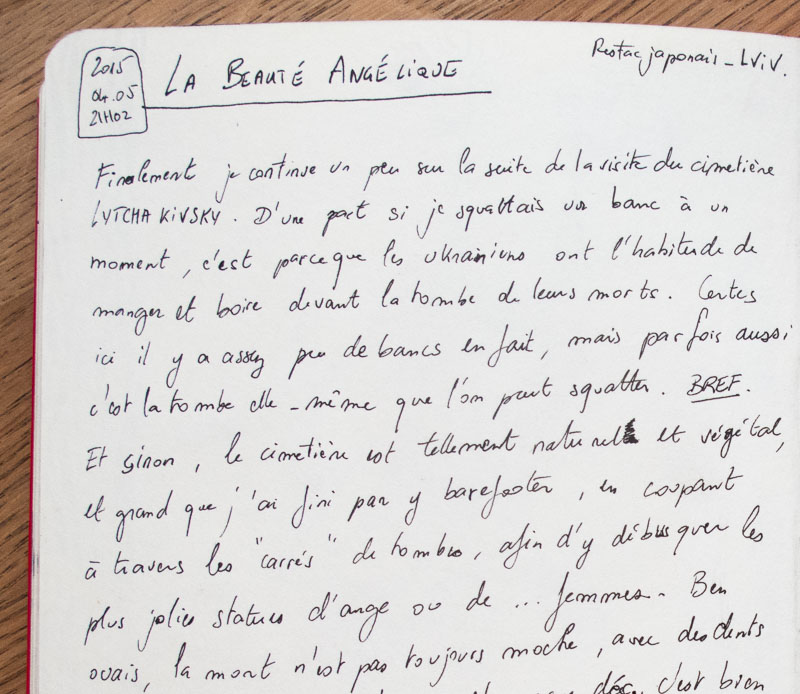 Restac japonais - LViV.
2015
04.05
21H02
LA BEAUTÉ ANGÉLIQUE
Finalement je continue un peu sur la suite de la visite du cimetière
LYTCHAKIVSKY. D'une part si je squattais un banc à un
moment, c'est parce que les ukrainiens ont l'habitude de
manger et boire devant la tombe de leurs morts. Certes
ici il y a assez peu de bancs en fait, mais parfois aussi
c'est la tombe elle-même que l'on peut squatter. BREF.
Et sinon, le cimetière est tellement naturel et végétal,
et grand que j'ai fini par y barefooter, en coupant
à travers les "carrés" de tombes, afin d'y débusquer les
plus jolies statues d'ange ou de ... femmes. Ben
ouais, la mort n'est pas toujours moche, avec des dents
c'est bien